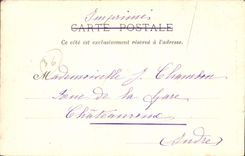 Imprimés
CARTE POSTALE
Ce côté est exclusivement réservé à l'adresse.
(36)
Mademoiselle J. Chambon
Rue de la Gare
Châteauroux
Indre